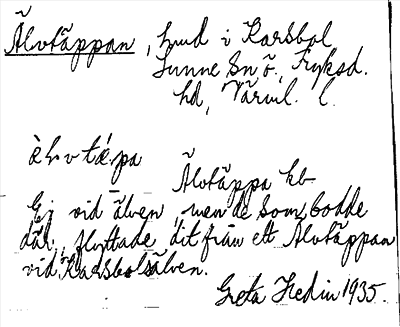 Älvtäppan, hmd i Karsbol
Sunne Sn ö, Fryksd.
hd, Värml. l.
Älvtäppa kb
Ej vid älven, men de som bodde
där, flyttade dit från ett Älvtäppan
vid Karsbolsälven.
Greta Hedin 1935.